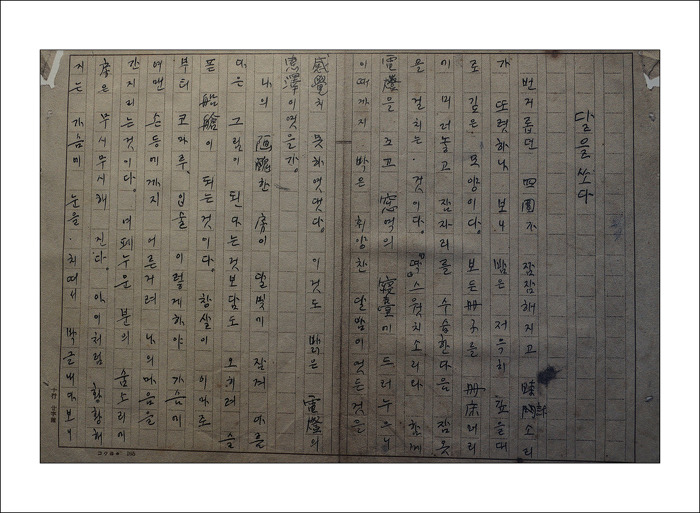 달을 쏘다
번거롭던 四圍가 잠잠해지고 時計소리
가 또렷하나 보니 밤은 저윽히 깊을대
로 깊은 모양이다. 보든 冊子를 冊床머리
에 미러놓고 잠자리를 수습한다음 잠옷
을 걸치는 것이다. 「딱」스윗치소리와 함께
電燈을 끄고 窓역의 寢臺에 드러누으니
이때까지 박은 휘양찬 달밤이엿든것을
感覺치 못하엿댓다. 이것도 밝은 電燈의
惠澤이엿을가.
나의 陋醜한 房이 달빛에 잠겨 아름
다운 그림이 된다는것보담도 오히려 슬
픈 船艙이 되는것이다. 창살이 이마로
부터 코마루, 입술 이렇게하야 가슴에
여맨 손등에까지 어른거려 나의마음을
간지리는것이다. 여페누운 분의 숨소리에
房은 무시무시해 진다. 아이처럼 황황해
지는 가슴에 눈을 치떠서 박글내다보니